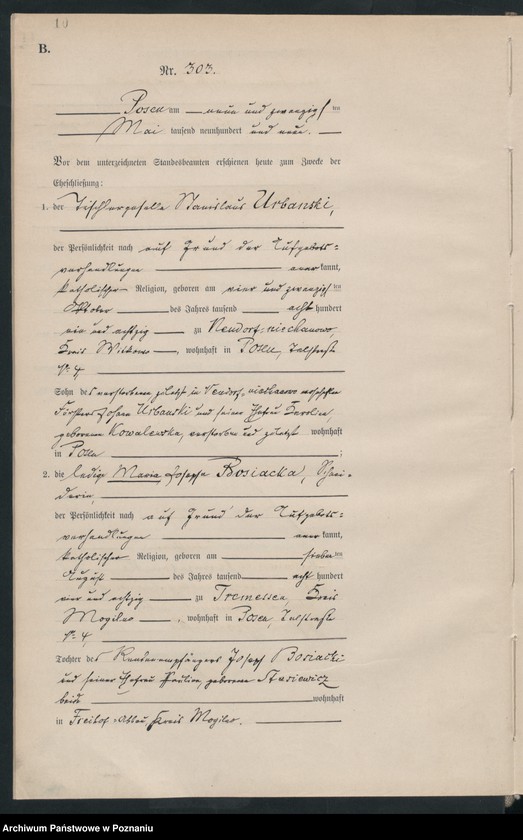 10
B.
Nr. 303.
Posen am neun und zwanzigsten
Mai tausend neunhundert und neun.
Vor dem unterzeichneten Standesbeamten erschienen heute zum Zwecke der
Eheschließung:
1. der Tischlergeselle Stanislaus Urbanski,
der Persönlichkeit nach auf Grund der Aufgebots=
verhandlungen anerkannt,
katholischer Religion, geboren am vier und zwanzigsten
Oktober des Jahres tausend acht hundert
ein und achtzig zu Neudorf=
Kreis Witkowo, wohnhaft in Posen,
Nr. 4
Sohn des verstorbenen zuletzt in Neudorf= wohnhaften
Försters Johann Urbanski und seiner Ehefrau
geborene Kowalewska, verstorben und zuletzt wohnhaft
in Posen ;
2. die ledige Maria Josepha Rosiacka, Schnei=
derin,
der Persönlichkeit nach auf Grund der Aufgebots=
verhandlungen anerkannt,
katholischer Religion, geboren am siebenten
August des Jahres tausend acht hundert
vier und achtzig zu Tremessen, Kreis
Mogilno, wohnhaft in Posen,
Nr. 4
Tochter des Rentenempfängers Josef Rosiacki
und seiner Ehefrau Pauline, geborene Stasiewicz
beide wohnhaft
in Kreis Mogilno.
Archiwum Państwowe w Poznaniu